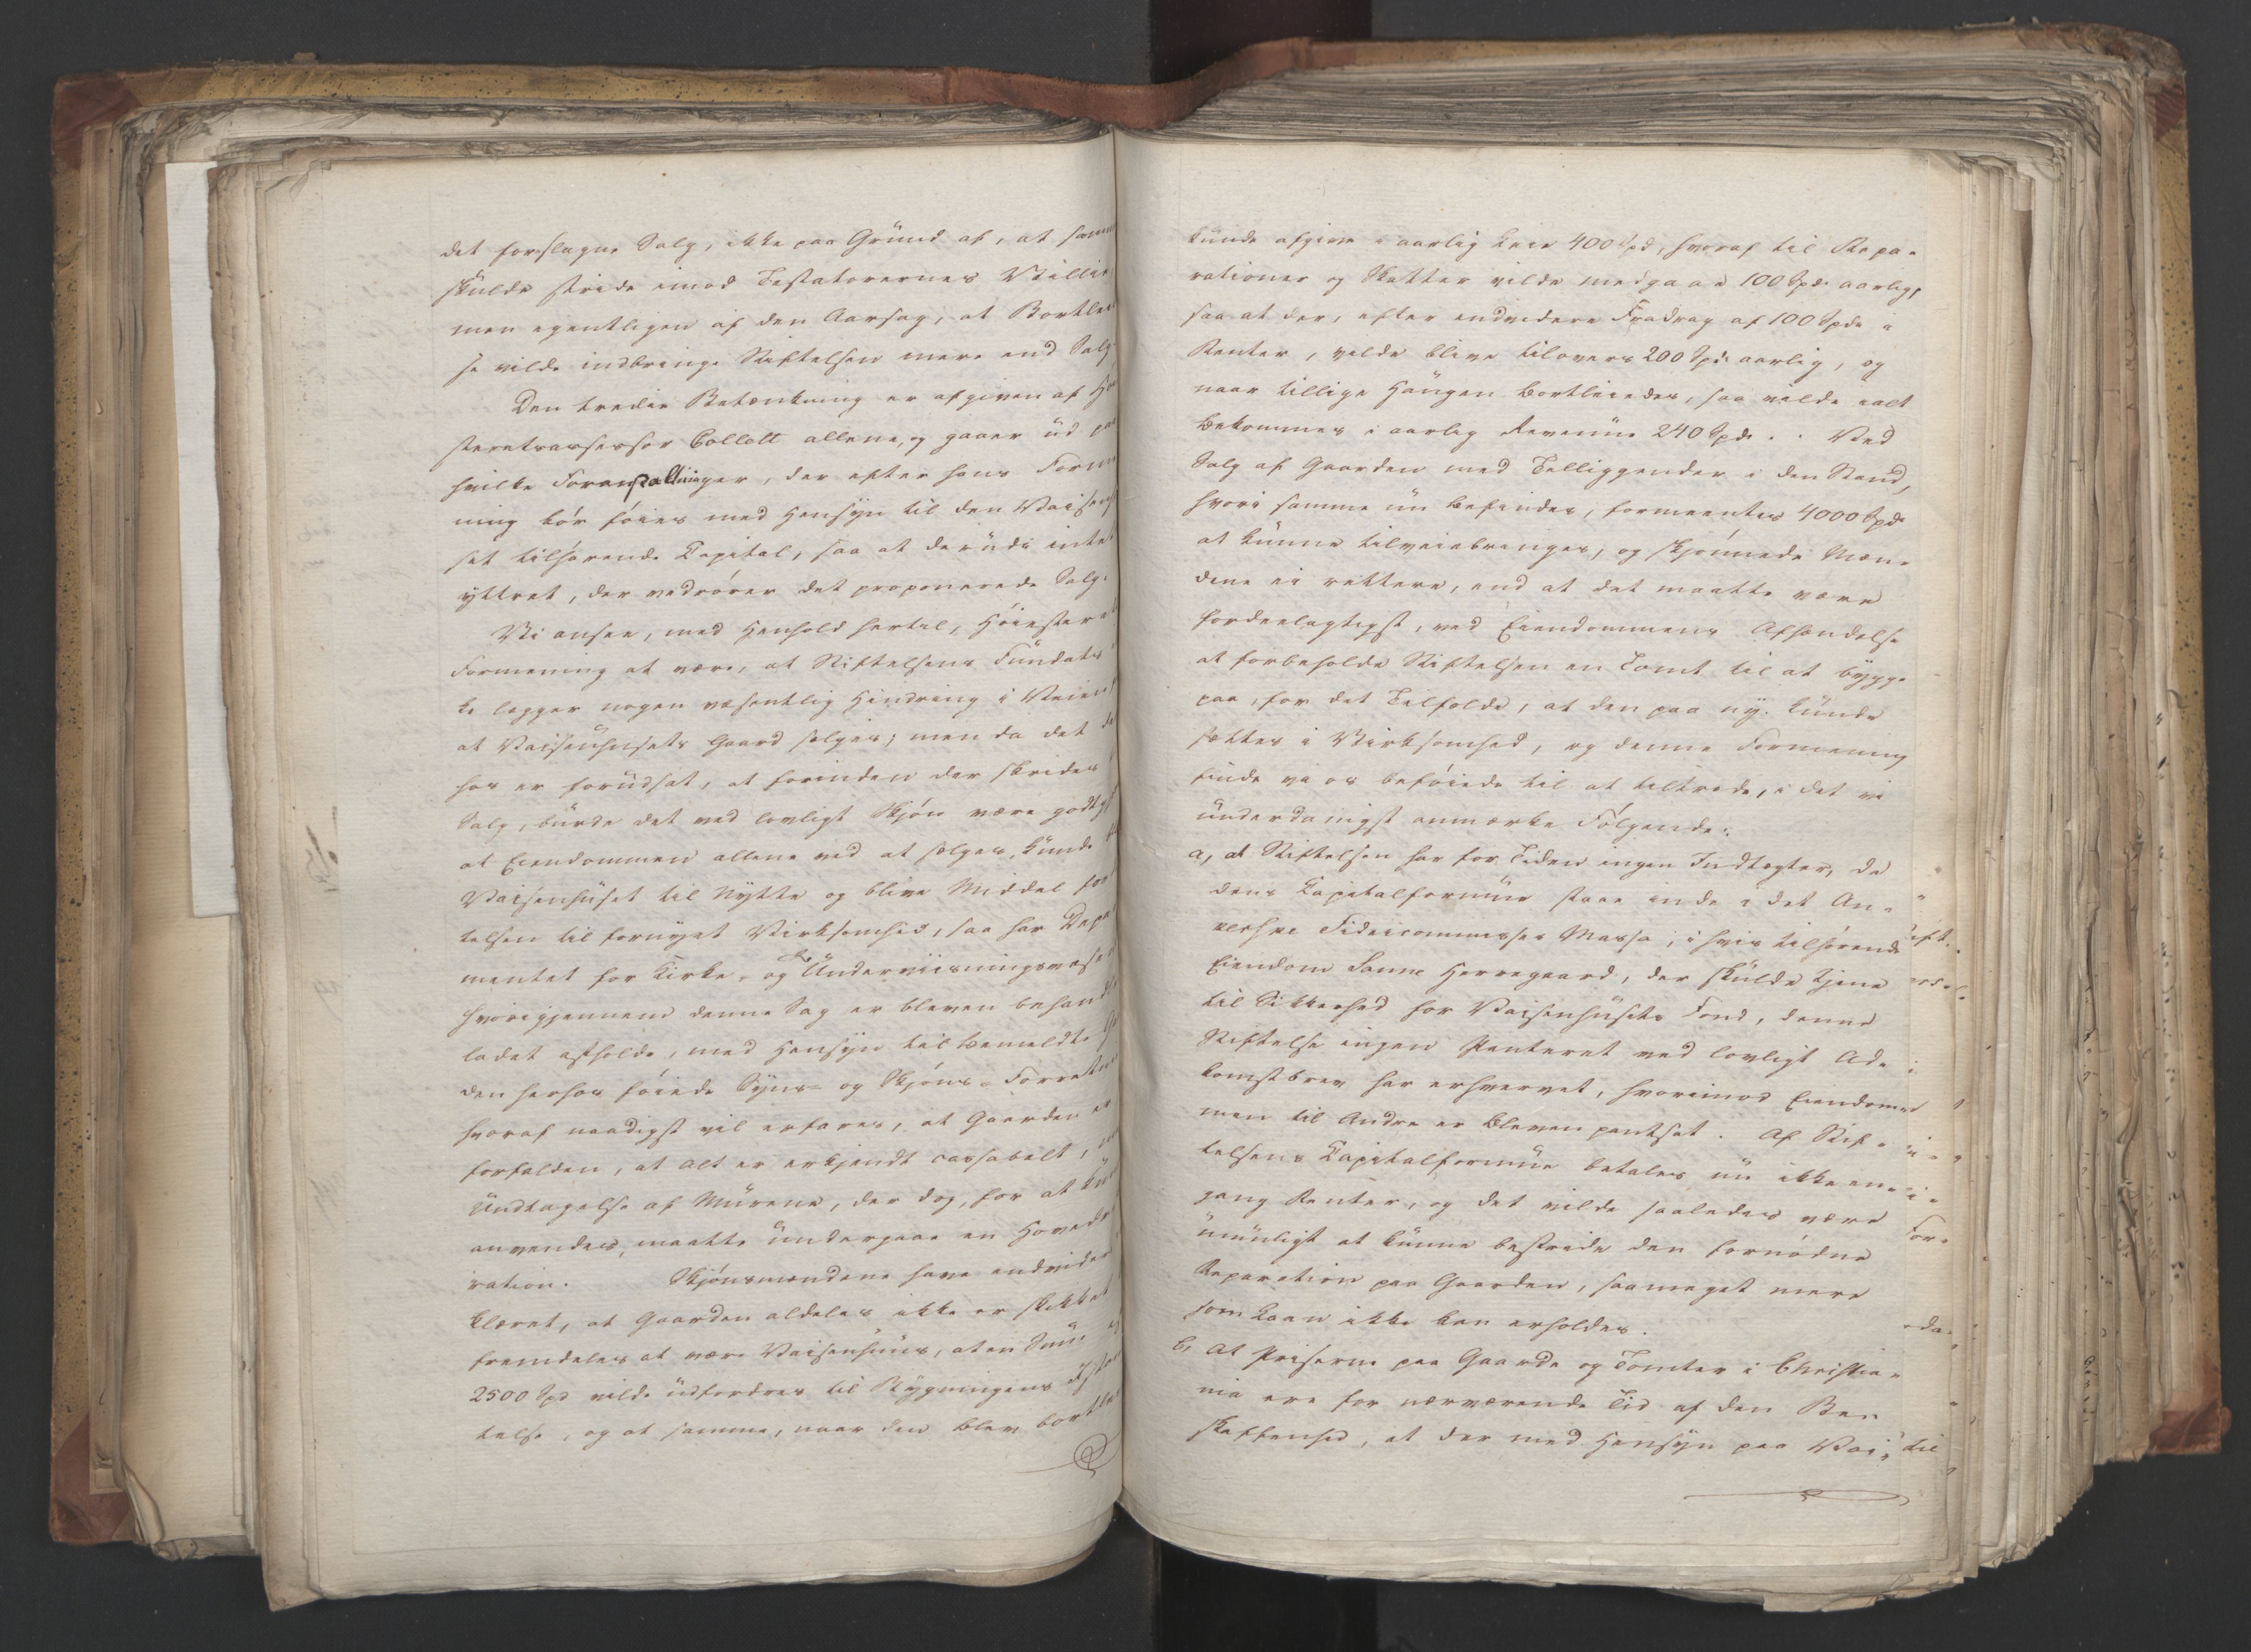 det forslagne Salg, ikke paa Grund af, at sam
skulde stride imod Testatorernes Villie
men egentligen af den Aarsag, at Bortlei
se vilde indbringe Stiftelsen mere end Salg
Den tredie Betænkning er afgiven af Hø
steretsassessor Collett allene, og gaaer ud paa
hvilke Foranstaltninger, der efter hans Forme
ning bør føies med Hensyn til den Vaisenh
set tilhørende Capital, saa at deri udi intet
yttret, der vedrører det proponerede Salg.
Vi ansee, med Henhold hertil, Høiesteret
Formening at være, at Stiftelsens Fundats
ke lægger nogen væsentlig Hindring i Veien
at Vaisenhusets Gaard sælges; men da det de
hos er forudsat, at forinden der skrides
Salg, burde det ved lovligt Skjøn være godtgj
at Eiendommen allene ved at sælges, kunde
Vaisenhuset til Nytte og blive Middel for
telsen til fornyet Virksomhed, saa har Depa
mentet for Kirke- og Underviisningsvæse
hvorigjennem denne Sag er bleven behand
ladet afholde, med Hensyn til bemeldte G
den herhos føiede Syns- og Skjøns-Forretn
hvoraf naadigst vil erfares, at Gaarden er
forfalden, at alt er erkjendt cassabelt,
Undtagelse af Murene, der dog, for at ku
anvendes, maatte undergaae en Hoved
ration. Skjønsmændene have endvider
klæret, at Gaarden aldeles ikke er skikket
fremdeles at være Vaisenhuus, at en Sum
2500 Spd vilde udfordres til Bygningens Istan
telse, og at samme, naar den blev bortle
kunde afgive i aarlig Leie 400 Spd, hvoraf til Repa-
rationer og Skatter vilde medgaae 100 Spd. aarlig,
saa at der, efter endvidere Fradrag af 100 Spd. i
Renter, vilde blive tilovers 200 Spd. aarlig, og
naar tillige Haugen bortleiedes, saa vilde ialt
bekommes i aarlig Revenue 240 Spd.. Ved
Salg af Gaarden med Tilliggender i den Stand,
hvori samme nu befindes, formeentes 4000 Spd.
at kunne tilveiebringes, og skjønnede Mæn-
dene ei rettere, end at det maatte være
fordeelagtigst, ved Eiendommens Afhændelse
at forbeholde Stiftelsen en Tomt til at bygge
paa, for det Tilfælde, at den paa ny kunde
sættes i Virksomhed, og denne Formening
finde vi os beføiede til at tiltræde, i det vi
underdanigst anmærke Følgende:
a, at Stiftelsen har for Tiden ingen Indtægter, da
dens Capitalformue staae inde i det An-
kerske Fideicommisses Massa, i hvis tilhørende
Eiendom Sanne Herregaard, der skulde tjene
til Sikkerhed for Vaisenhusets Fond, denne
Stiftelse ingen Panteret ved lovligt Ad-
komstbrev har erhvervet, hvorimod Eiendom-
men til Andre er bleven pantsat. Af Stif-
telsens Capitalformue betales nu ikke een-
gang Renter, og det vilde saaledes være
umuligt at kunne bestride den fornødne
Reparation paa Gaarden, saameget mere
som Laan ikke kan erholdes.
b, at Priserne paa Gaarde og Tomter i Christia-
nia ere for nærværende Tid af den Be-
skaffenhed, at der med Hensyn paa Vai-